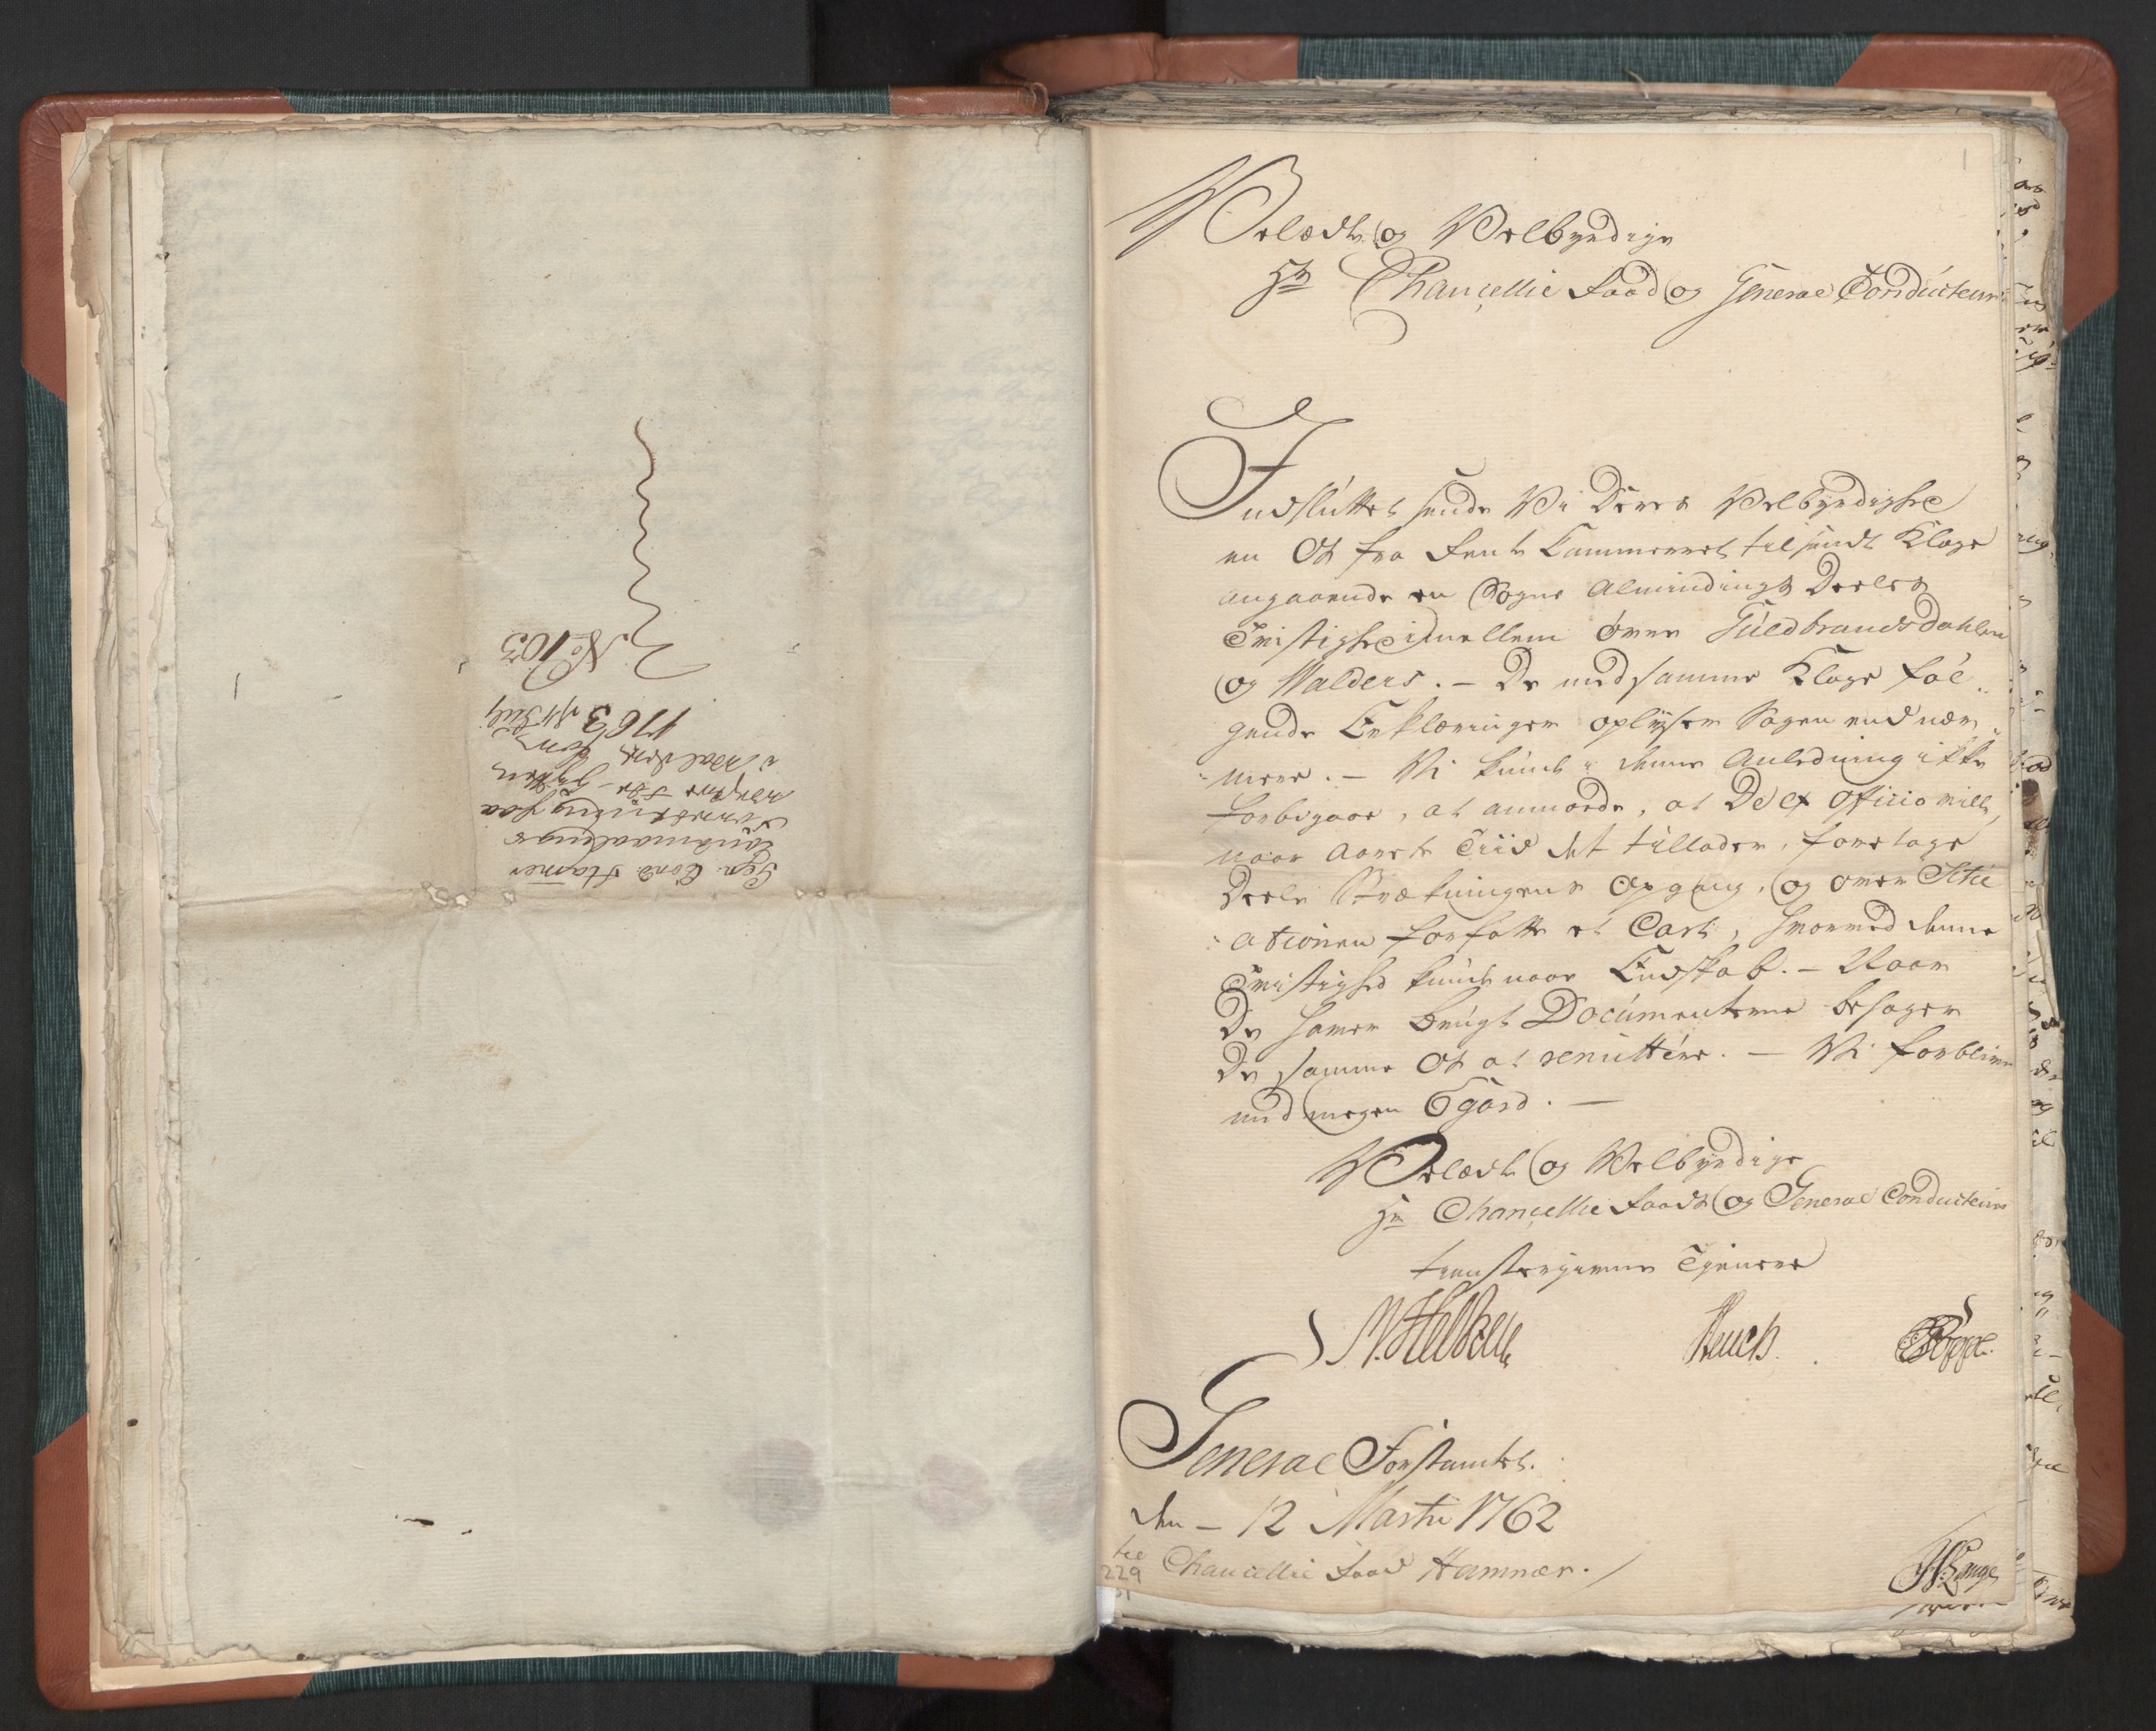 No 103
1763 14 Julj
Gen. Cond. Hamer
Landmaalings
Forretning paa
i Walders
Velædle og Velbyrdige
Hr Chancellie Raad og General Conducteur
Indsluttet sende Vi Deres Velbyrdighed
en Os fra Rente Cammeret tilsendt Klage
angaaende en Sogne Almindings Deeles
Tvistighed imellem over Guldbrandsdahlen
og Walders. – De med samme Klage föl„
gende Erklæringer oplyser Sagen end nær„
„mere. – Vi kunde i denne Anledning ikke
forbigaae, at anmode, at De ex officio vilde,
naar Aarets Tiid det tillader, foretage
Deele Strækningens Opgang, og over Situ
„ationen forfatte et Cart, hvorved denne
Tvistighed kunde naae Endskab. – Naar
De haver brugt Documenterne behager
De samme Os at remittére. – Vi forblive
med megen Egard. –
Velædle og Velbyrdige
Hr Chancellie Raads og General Conducteurs
tienstvergivne Tienere
Heuch.
General Forstamtet.
den – 12 Martii 1762
til
Chancellie Raad Hammer.
229